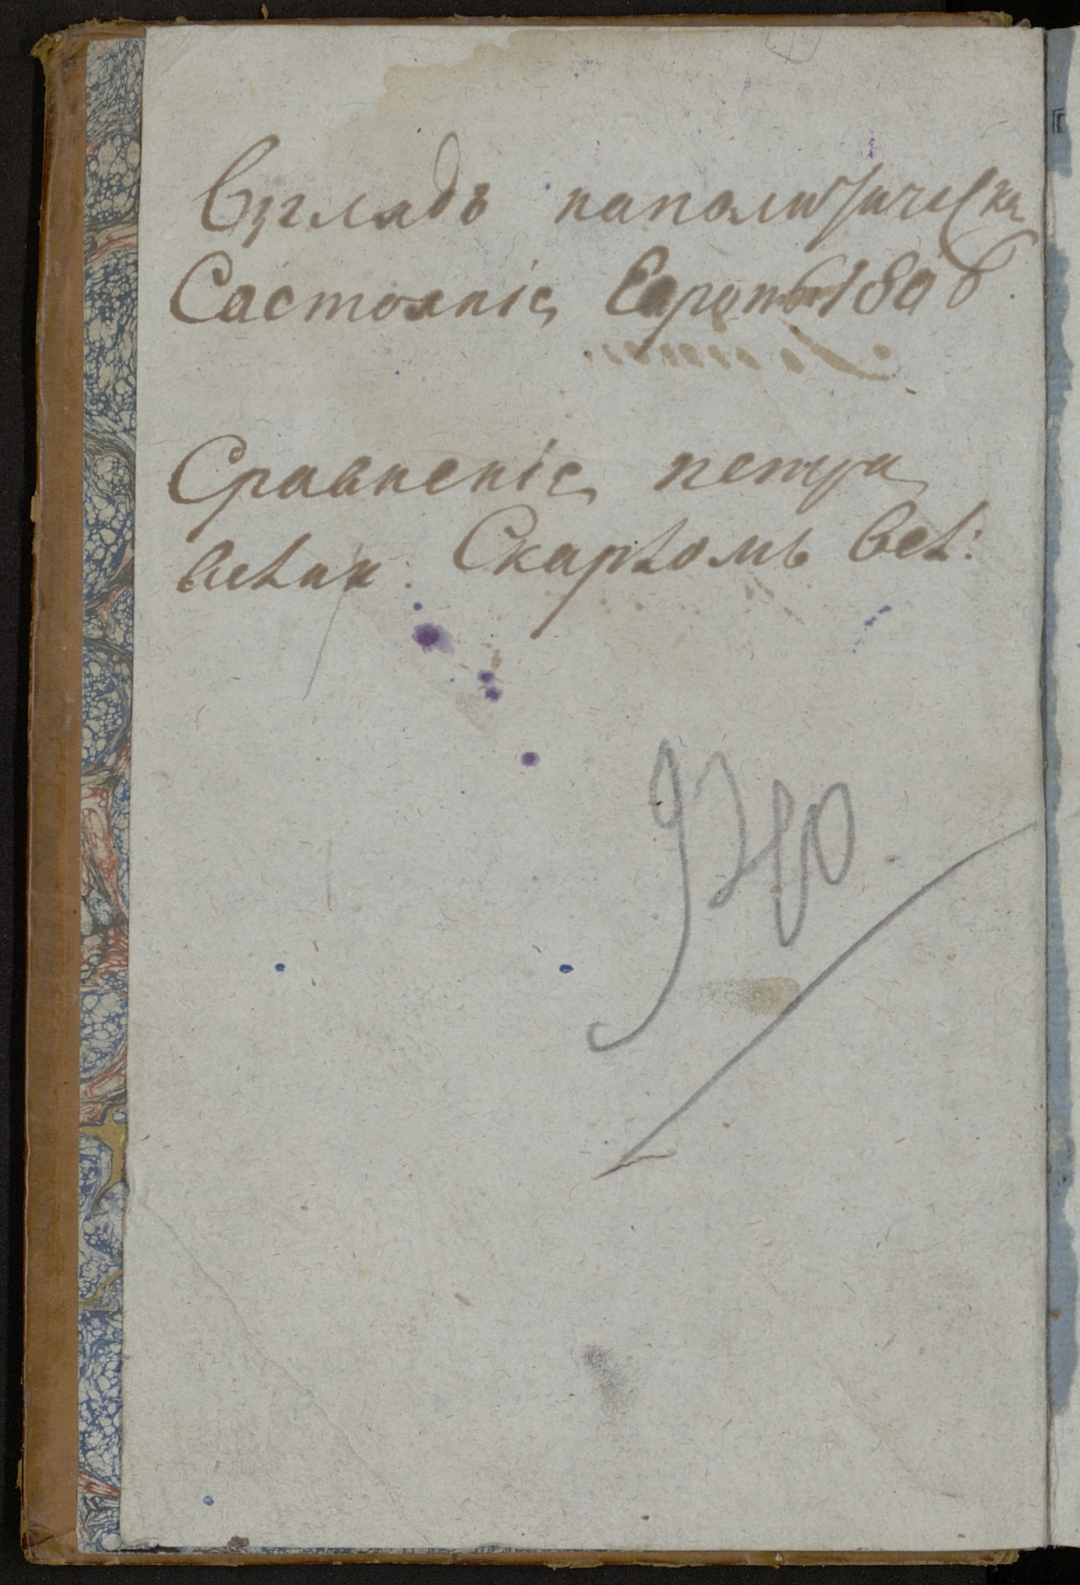 Взглядъ наполитическа
Састояніе Еаропы 1806
Сравненіе петра
велик: Скарломъ вел: